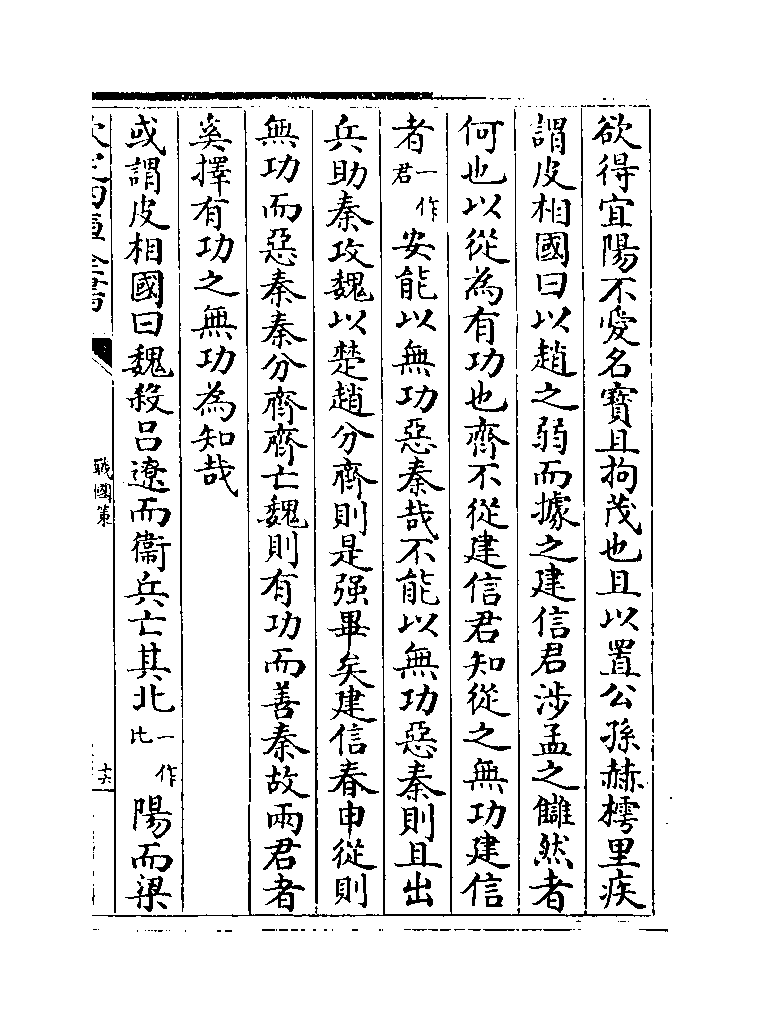 欲得宜陽不愛名寳且拘茂也且以置公孫赫樗里疾
謂皮相國曰以趙之弱而據之建信君涉孟之讎然者
何也以從為有功也齊不從建信君知從之無功建信
者一作君安能以無功惡秦哉不能以無功惡秦則且出
兵助秦攻魏以楚趙分齊則是强畢矣建信春申從則
無功而惡秦秦分齊齊亡魏則有功而善秦故兩君者
奚擇有功之無功為知哉
或謂皮相國曰魏殺吕遼而衞兵亡其北一作比陽而梁
戰國策
十六